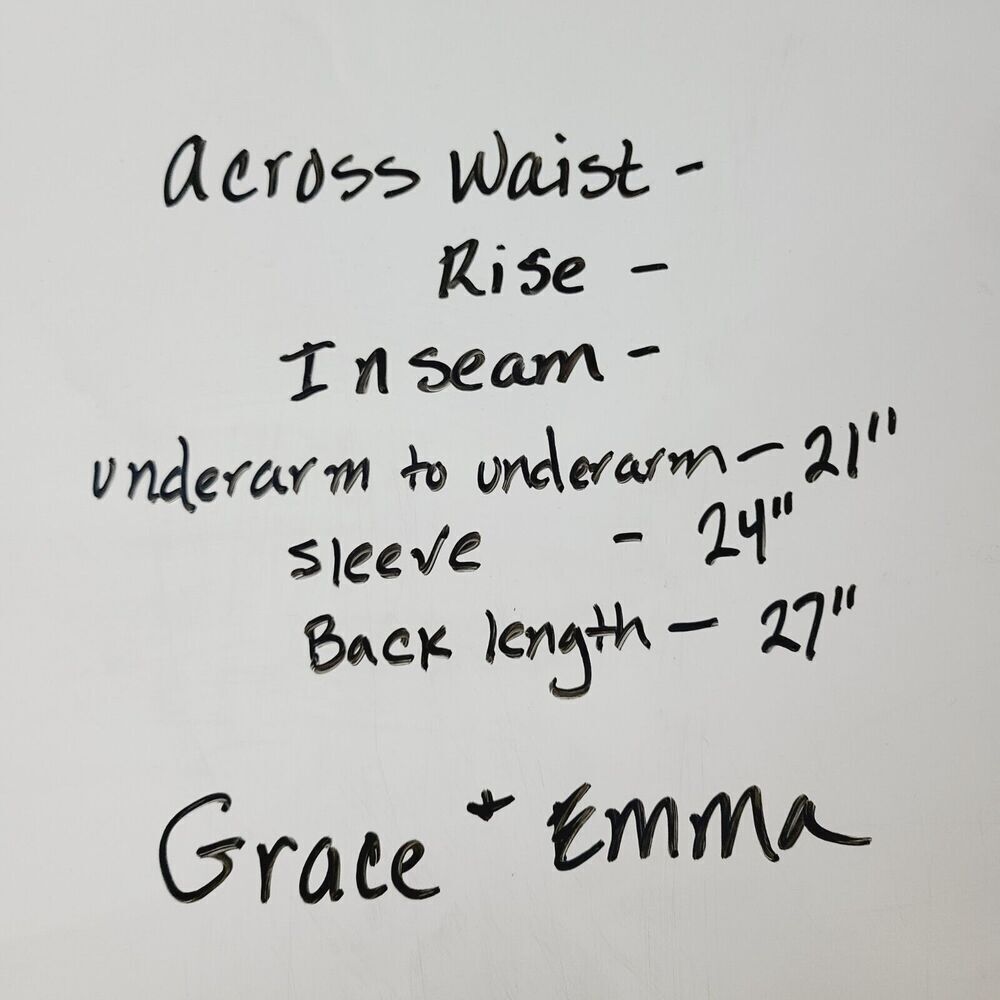 Across Waist -
Rise -
Inseam -
underarm to underarm - 21"
sleeve - 24"
Back length - 27"
Grace + Emma